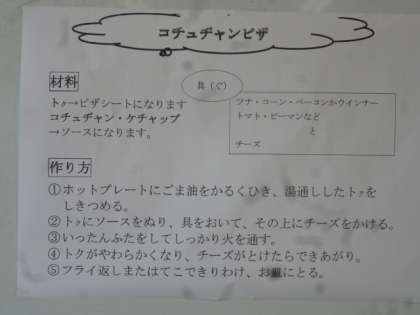 コチュヂャンピザ
材料
具(ぐ)
トック→ピザシートになります
コチュヂャン・ケチャップ
→ソースになります。
ツナ・コーン・ベーコンかウインナー
トマト・ピーマンなど
と
チーズ
作り方
①ホットプレートにごま油をかるくひき、湯通ししたトックを
しきつめる。
②トックにソースをぬり、具をおいて、その上にチーズをかける。
③いったんふたをしてしっかり火を通す。
④トクがやわらかくなり、チーズがとけたらできあがり。
⑤フライ返しまたはてこできりわけ、お皿にとる。